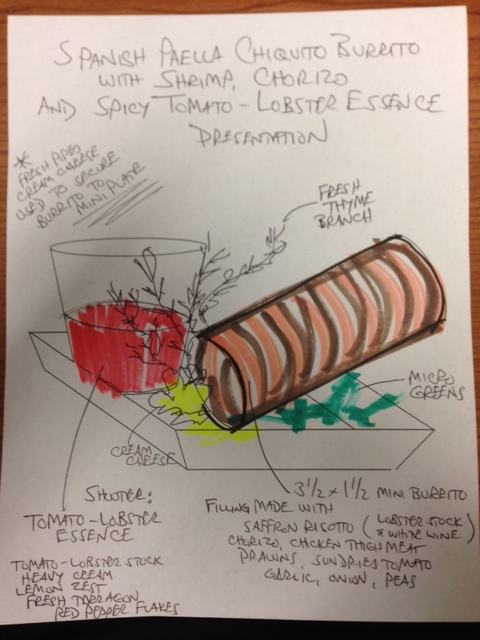 SPANISH PAELLA CHIQUITO BURRITO
WITH SHRIMP, CHORIZO
AND SPICY TOMATO-LOBSTER ESSENCE
PRESENTATION
*
FRESH PIPED
CREAM CHEESE
USED TO SECURE
BURRITO TO
MINI PLATE
FRESH
THYME
BRANCH
MICRO
GREENS
CREAM
CHEESE
3 1/2 x 1 1/2 MINI BURRITO
FILLING MADE WITH
SAFFRON RISOTTO (LOBSTER STOCK
& WHITE WINE)
CHORIZO, CHICKEN THIGH MEAT
PRAWNS, SUNDRIED TOMATO
GARLIC, ONION, PEAS
SHOOTER:
TOMATO-LOBSTER
ESSENCE
TOMATO-LOBSTER STOCK
HEAVY CREAM
LEMON ZEST
FRESH TARRAGON
RED PEPPER FLAKES